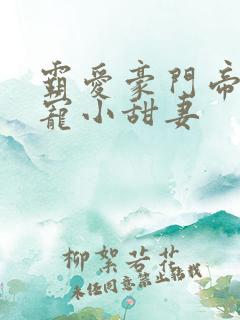 霸愛豪門帝
寵小甜妻
柳絮若花
未经同意禁止转载